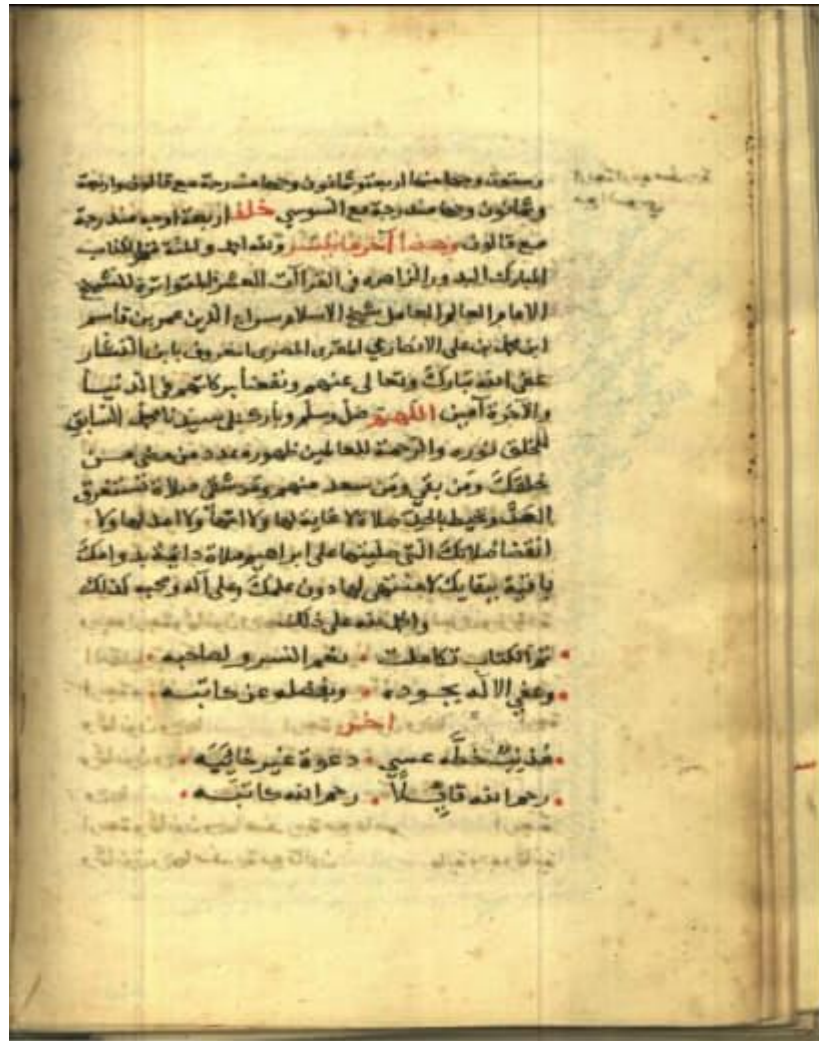 وستون وجها منها اربعة وثمانون وجها مندرجة مع قالون واربعة
وثمانون وجها مندرجة مع السوسي خلف اربعة اوجه مندرجة
مع قالون وهذا آخر ما تيسر ولله الحمد والمنة تم الكتاب
المبارك البدور الزاهره في القراآت العشر المتواترة للشيخ
الامام العالم العامل شيخ الاسلام سراج الدين عمر بن قاسم
ابن محمد بن علي الانصاري المقرى المصرى المعروف بابن النشار
عفى الله تبارك وتعالى عنهم ونفعنا ببركاتهم في الدنيا
والاخرة آمين اللهم صل وسلم وبارك على سيدنا محمد السابق
للخلق نوره والرحمة للعالمين ظهوره عدد من مضى من
خلقك ومن بقي ومن سعد منهم ومن شقى صلاة تستغرق
العد وتحيط بالحد صلاة لا غاية لها ولا انتهاء ولا امد لها ولا
انقضا صلاتك التي صليتها على ابراهيم صلاة دائمة بدوامك
باقية ببقايك لا منتهى لها دون علمك وعلى آله وصحبه كذلك
والحمد لله على ذلك
تم الكتاب تكاملت نعم السرور لصاحبه
وعفى الاله بجوده وبفضله عن كاتبه
اخر
مذنب خطه عسى دعوة غير خائبه
رحم الله قائلا رحم الله كاتبه
مع السوسي